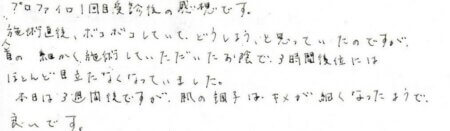 プロファイロ1回目受診後の感想です。
施術直後、ボコボコしていて、どうしよう、と思っていたのですが、
首の細かく施術していただいたお陰で、3時間後位には
ほとんど目立たなくなっていました。
本日は3週間後ですが、肌の調子はキメが細くなったようで、
良いです。